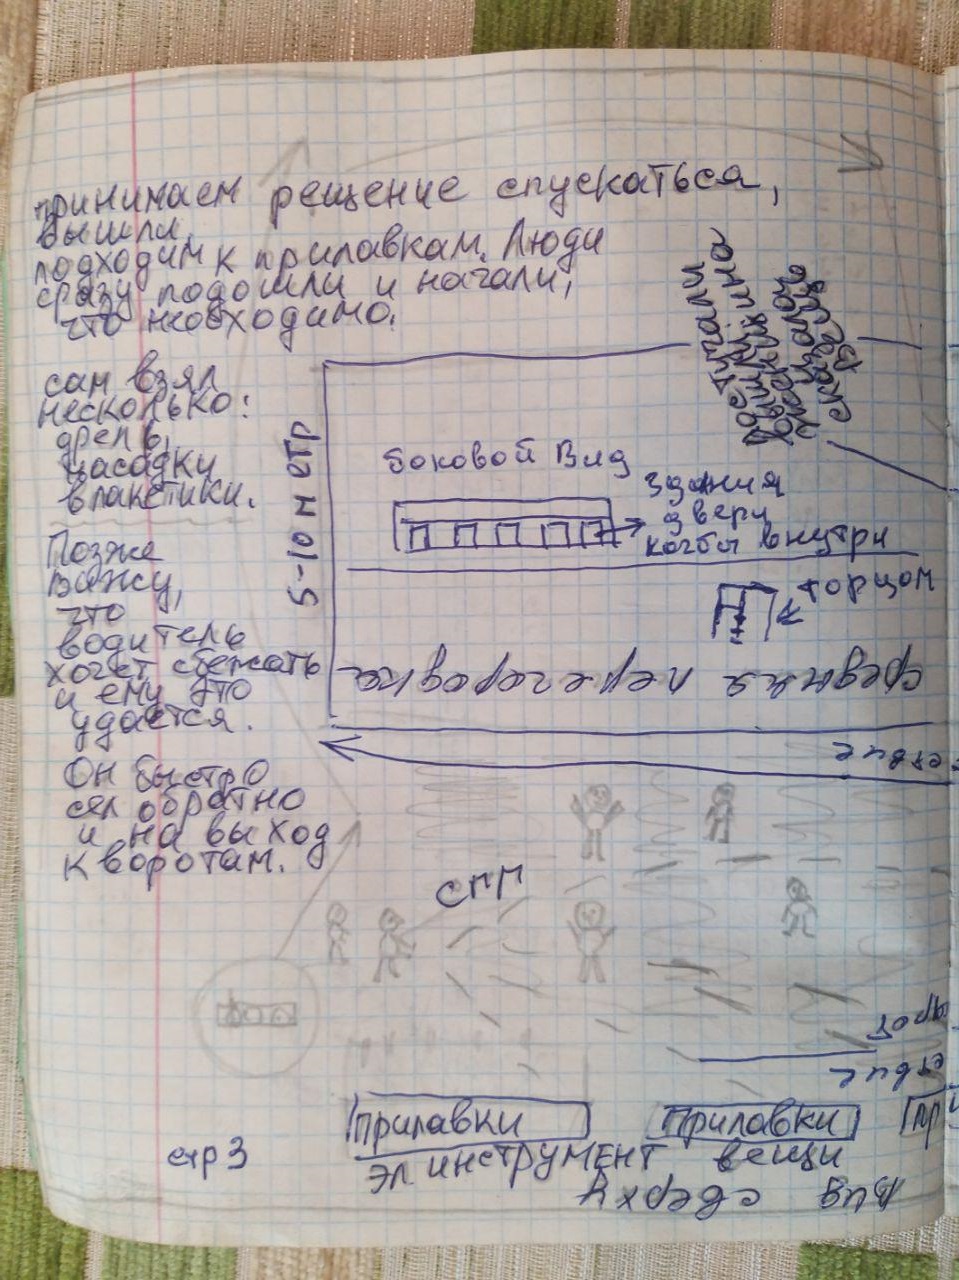 принимаем рещение спускаться,
вышли,
подходим к прилавкам. Люди
сразу подошли и начали,
что необходимо.
сам взял
несколько:
дрель,
насадки
в пакетики.
Позже
вижу,
что
водитель
хочет сбежать
и ему это
удается.
Он быстро
сел обратно
и на выход
к воротам.
5-10 метр
боковой вид
здания
двери
когбы внутри
торцом
средняя перегородка
спп
прилавки
прилавки
пр
эл инструмент вещи
вид сверху
стр 3